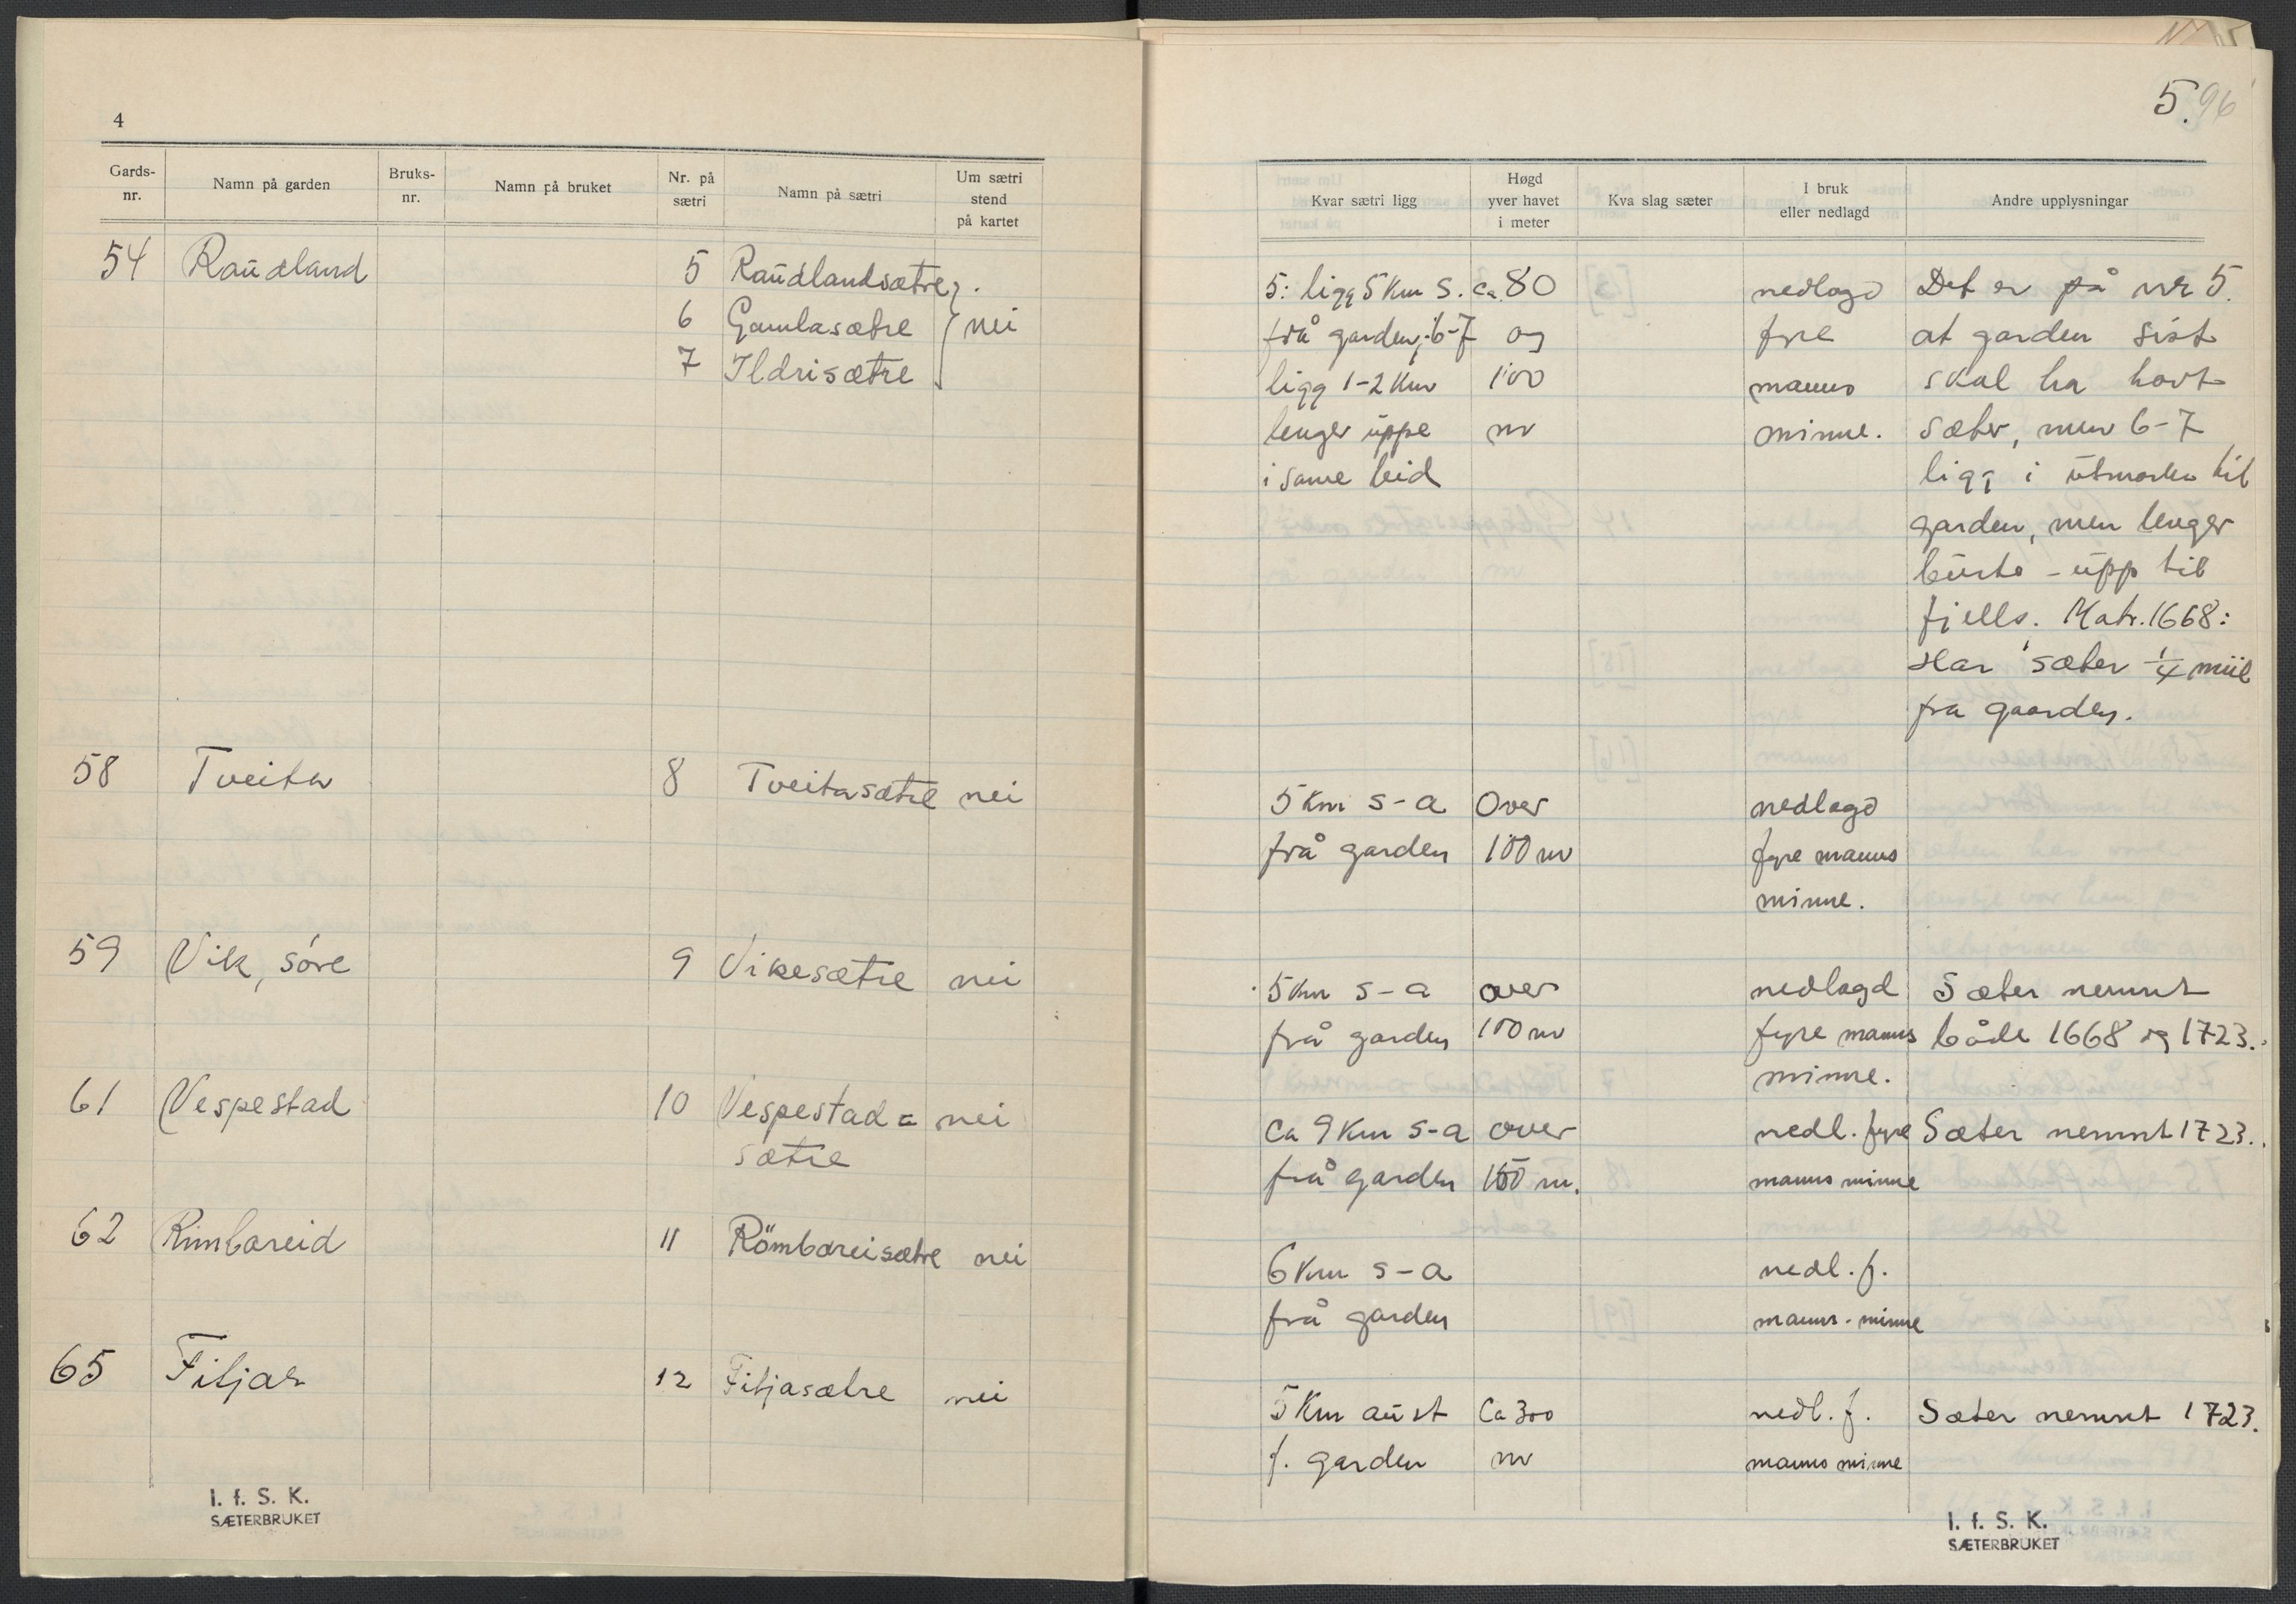 4
Gards-nr. Namn på garden Bruks-nr. Namn på bruket Nr. på sætri Namn på sætri Um sætri stend på kartet
54 Raudland 5 Raudlandsætre
6 Gamlasætre nei
7 Ildrisætre
58 Tveita 8 Tveitasætre nei
59 Vik, søre 9 Vikesætre nei
61 Vespestad 10 Vespestad= nei
sætre
62 Rimbareid 11 Römbareisætre nei
65 Fitjar 12 Fitjasætre nei
I. f. S. K.
SÆTERBRUKET
5. 96
Kvar sætri ligg Høgd yver havet i meter Kva slag sæter I bruk eller nedlagd Andre upplysningar
5: ligg 5 km s. ca. 80 nedlagd Det er på nr 5.
frå garden; 6-7 og fyre at garden sist
ligg 1-2 km 100 manns skal ha havt
lenger uppe m minne. sæter, men 6-7
i same leid ligg i utmarka til
garden, men lenger
burte - upp til
fjells. Matr. 1668:
Har sæter 1/4 miil
fra gaarden.
5 km s-a Over nedlagd
frå garden 100 m fyre manns
minne.
5 km s-a over nedlagd Sæter nemnt
frå garden 100 m fyre manns både 1668 og 1723.
minne.
Ca 9 km s-a over nedl. fyre Sæter nemnt 1723.
frå garden 100 m. manns minne
6 km s-a nedl. f.
frå garden manns-minne
5 km aust Ca 300 nedl. f. Sæter nemnt 1723.
f. garden m manns minne
I. f. S. K.
SÆTERBRUKET